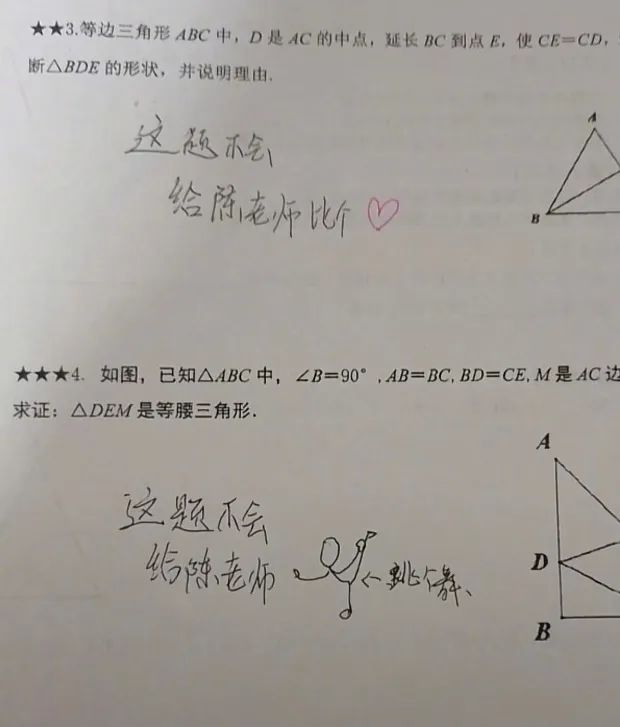 ★★3.等边三角形 ABC 中，D 是 AC 的中点，延长 BC 到点 E，使 CE=CD，
断△BDE 的形状，并说明理由.
A
B
这题不会
给陈老师比个♡
★★★4. 如图，已知△ABC 中，∠B=90°,AB=BC,BD=CE,M 是 AC 边
求证：△DEM 是等腰三角形.
A
D
B
这题不会
给陈老师
←跳个舞、